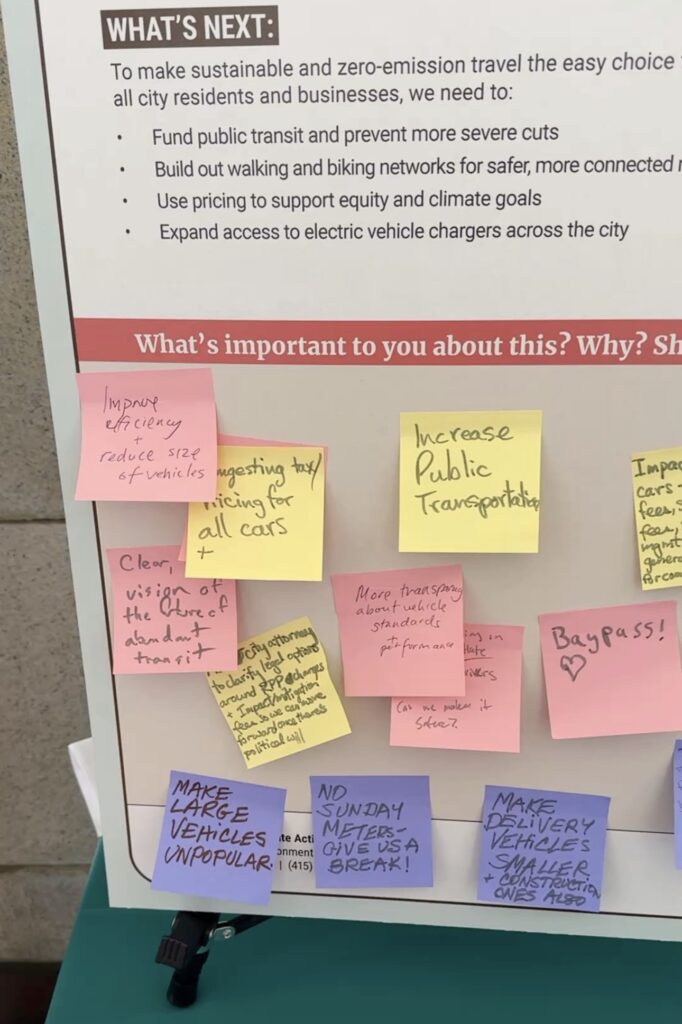 WHAT'S NEXT:
To make sustainable and zero-emission travel the easy choice
all city residents and businesses, we need to:
• Fund public transit and prevent more severe cuts
• Build out walking and biking networks for safer, more connected
• Use pricing to support equity and climate goals
• Expand access to electric vehicle chargers across the city
What's important to you about this? Why? Sh
Improve
efficiency
+
reduce size
of vehicles
ngesting tax/
ricing for
all cars
+
Increase
Public
Transportation
Impac
cars -
fees,
fees,
mgmt
genera
for com
Clear,
vision of
the future of
abundant
transit
city attorney
to clarify legal options
around RPP charges
+ Impact/mitigation
fees so we can move
forward once there's
political will
More transparency
about vehicle
standards
+
performance
ing in
Can we make it
safer?
Baypass!
♡
MAKE
LARGE
VEHICLES
UNPOPULAR.
NO
SUNDAY
METERS-
GIVE US A
BREAK!
MAKE
DELIVERY
VEHICLES
SMALLER
+ CONSTRUCTION
ONES ALSO
te Acti
onment
| (415)